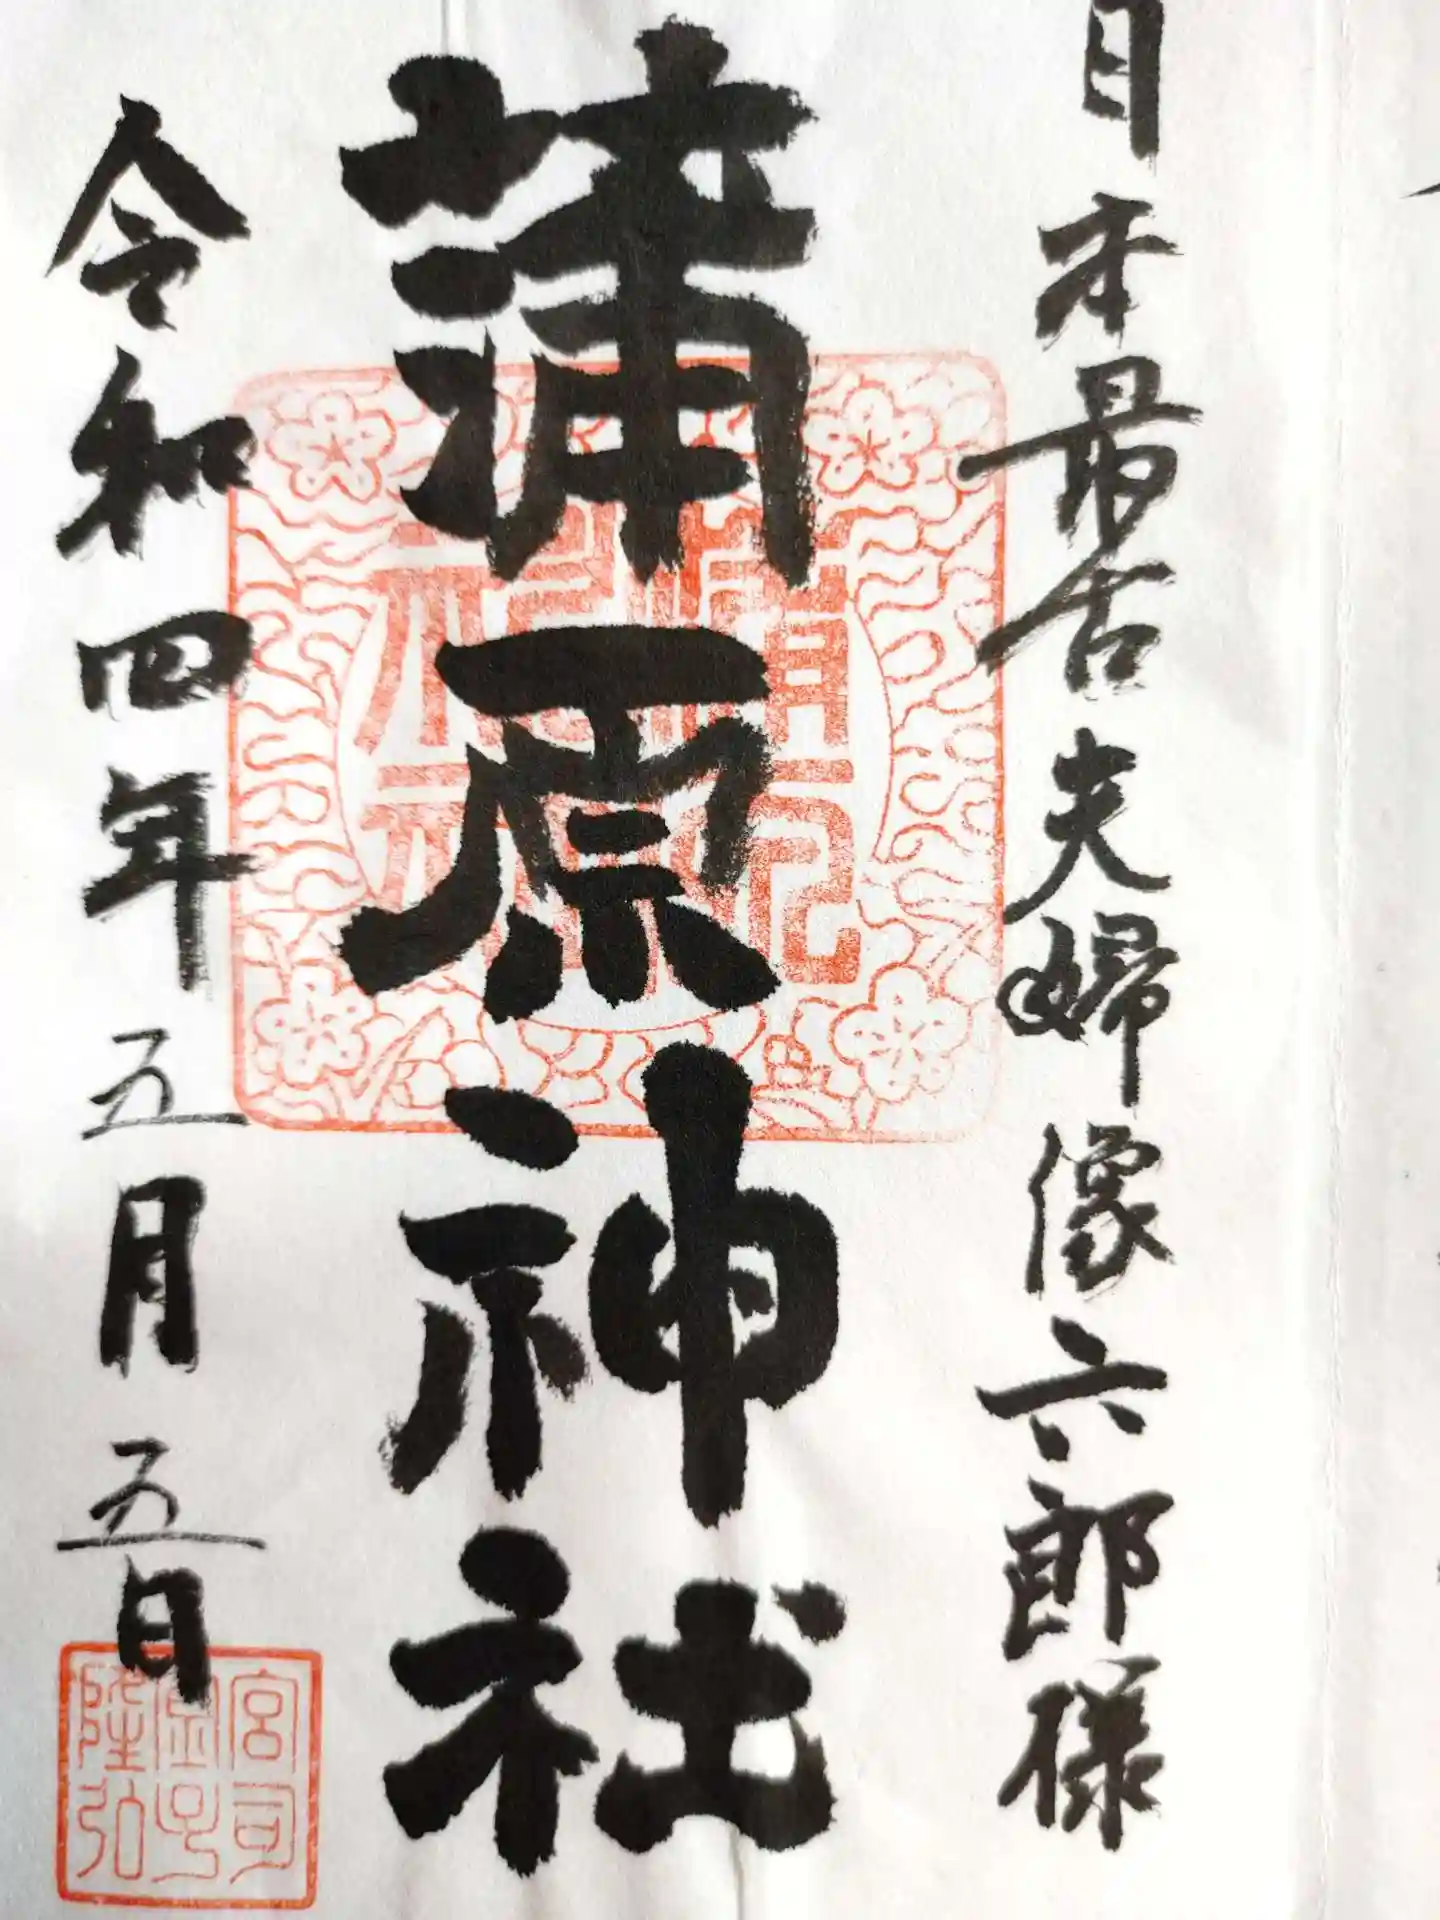 日本最古夫婦像六郎様
蒲原神社
令和四年五月五日
宮司
金子
隆弘